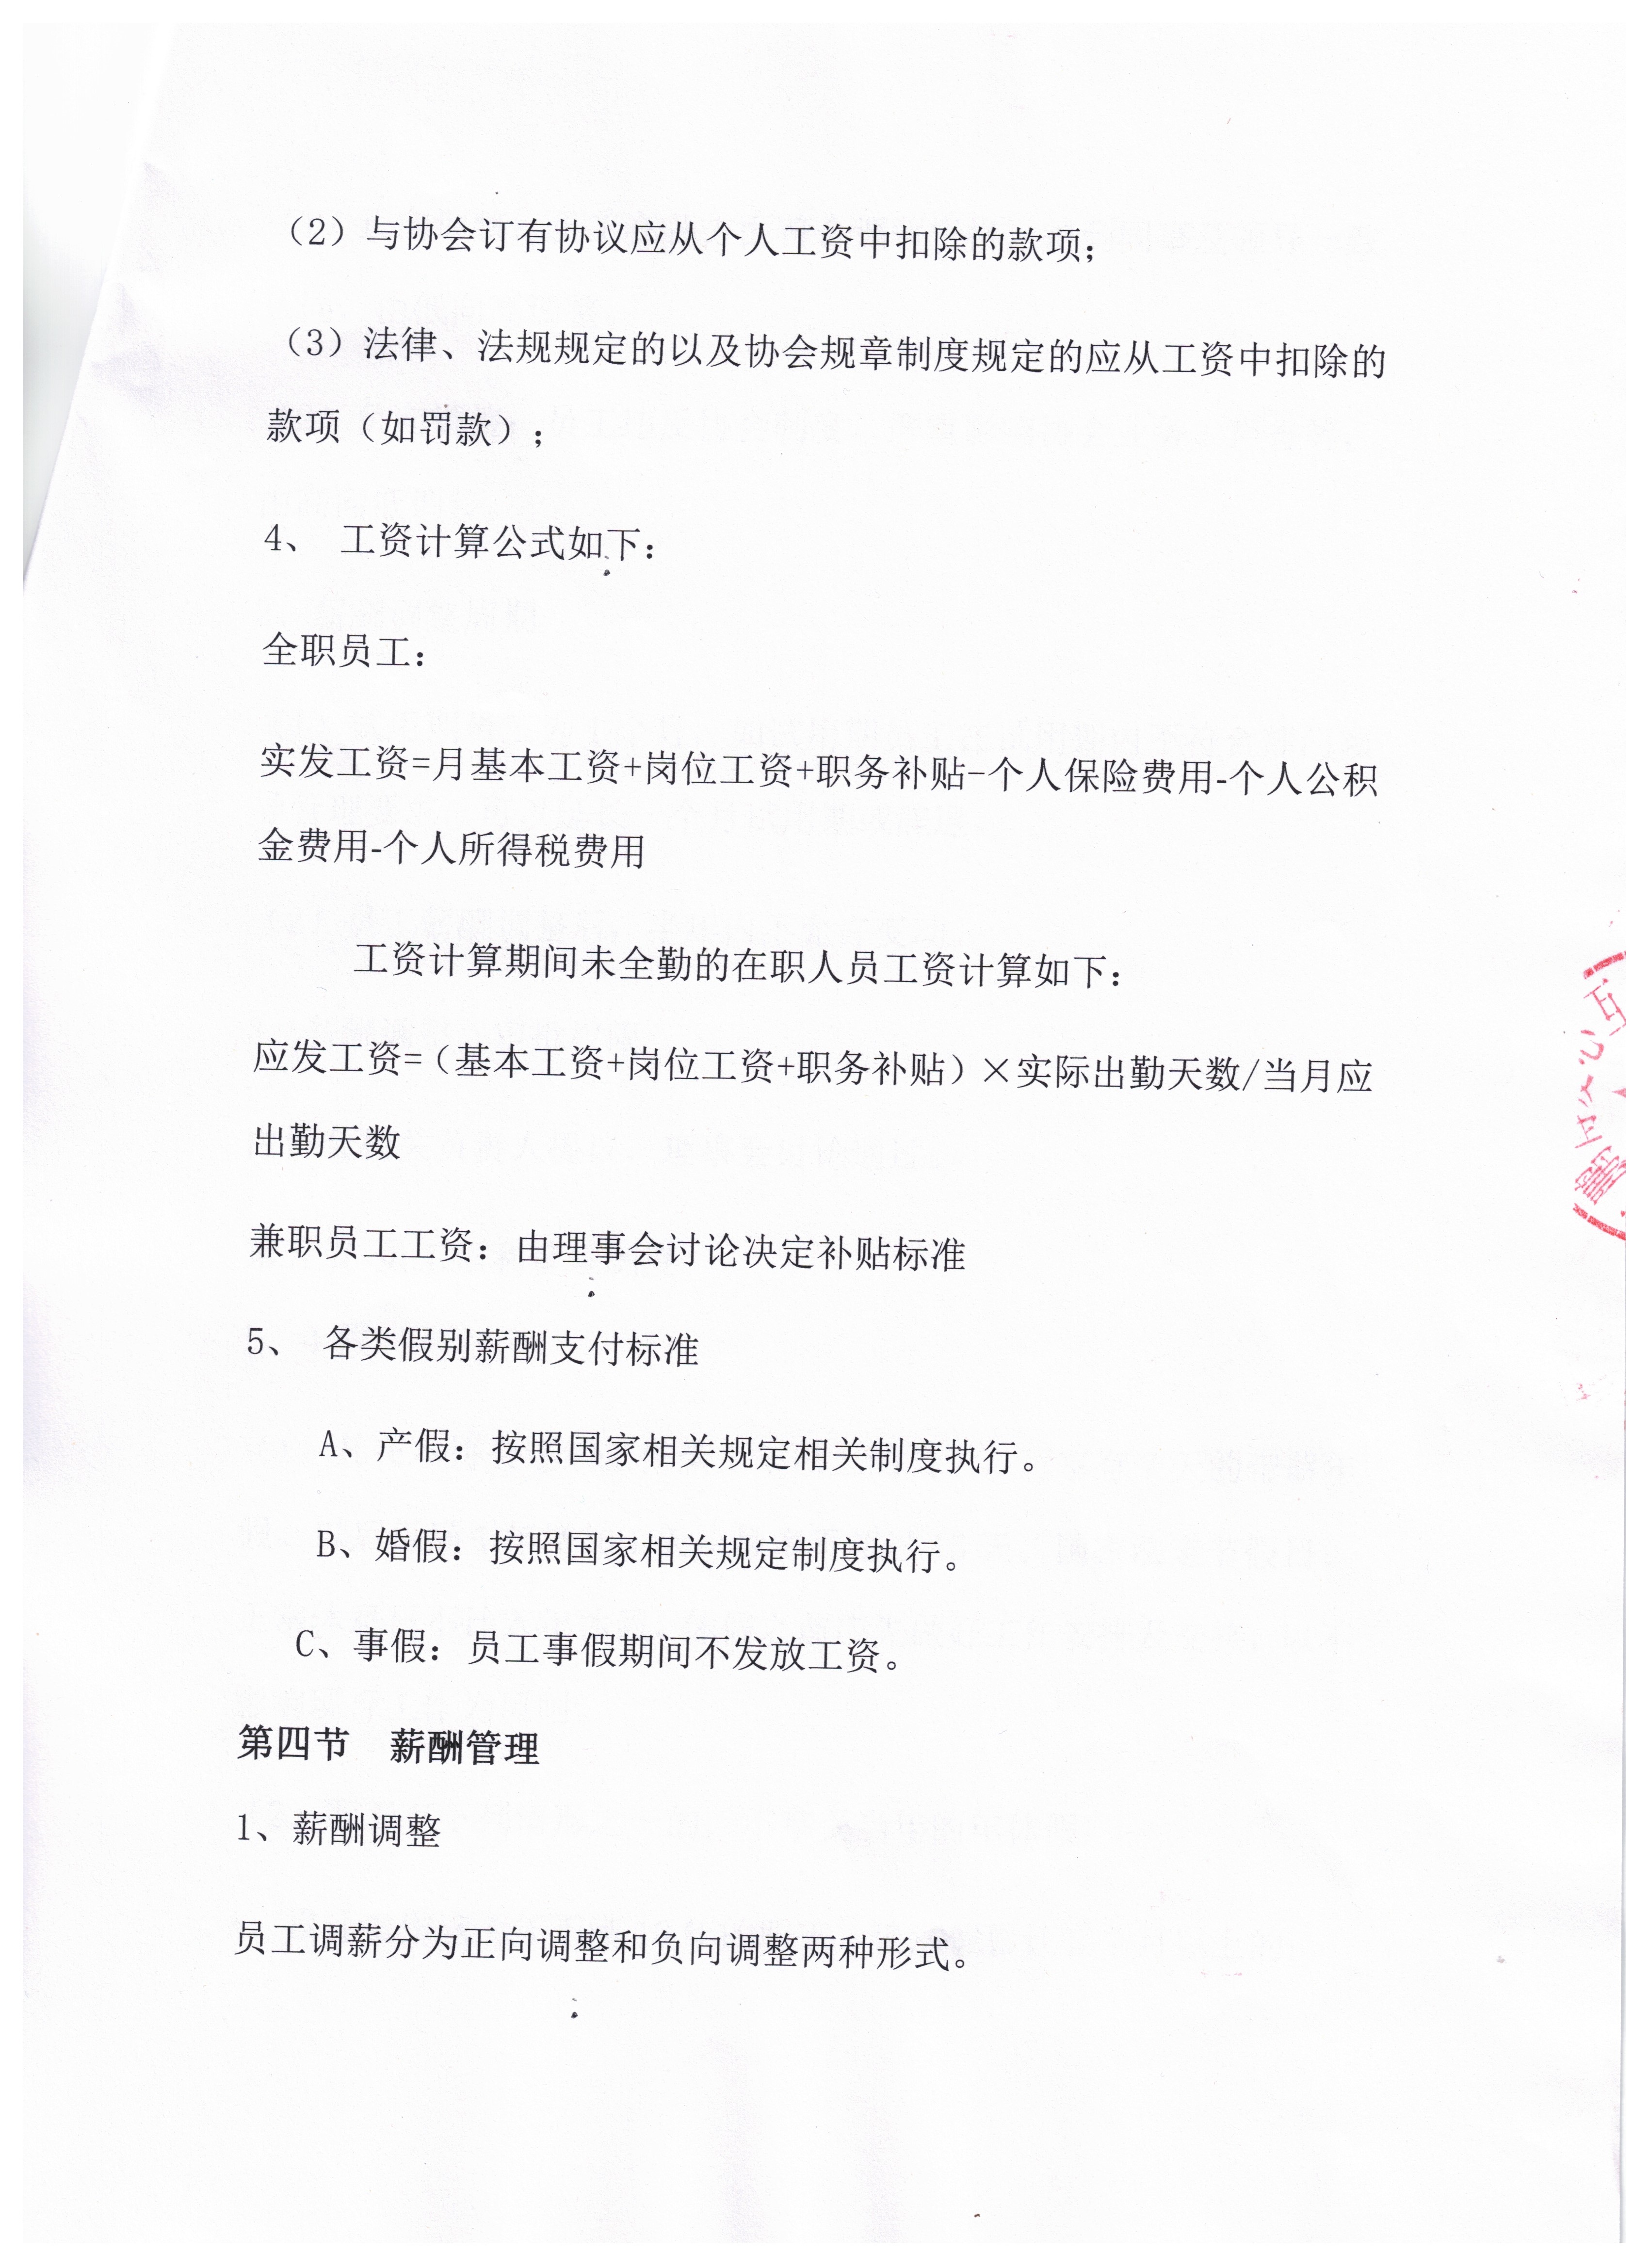 （2）与协会订有协议应从个人工资中扣除的款项；
（3）法律、法规规定的以及协会规章制度规定的应从工资中扣除的
款项（如罚款）；
4、 工资计算公式如下：
全职员工：
实发工资=月基本工资+岗位工资+职务补贴-个人保险费用-个人公积
金费用-个人所得税费用
工资计算期间未全勤的在职人员工资计算如下：
应发工资=（基本工资+岗位工资+职务补贴）×实际出勤天数/当月应
出勤天数
兼职员工工资：由理事会讨论决定补贴标准
5、 各类假别薪酬支付标准
A、产假：按照国家相关规定相关制度执行。
B、婚假：按照国家相关规定制度执行。
C、事假：员工事假期间不发放工资。
第四节 薪酬管理
1、薪酬调整
员工调薪分为正向调整和负向调整两种形式。